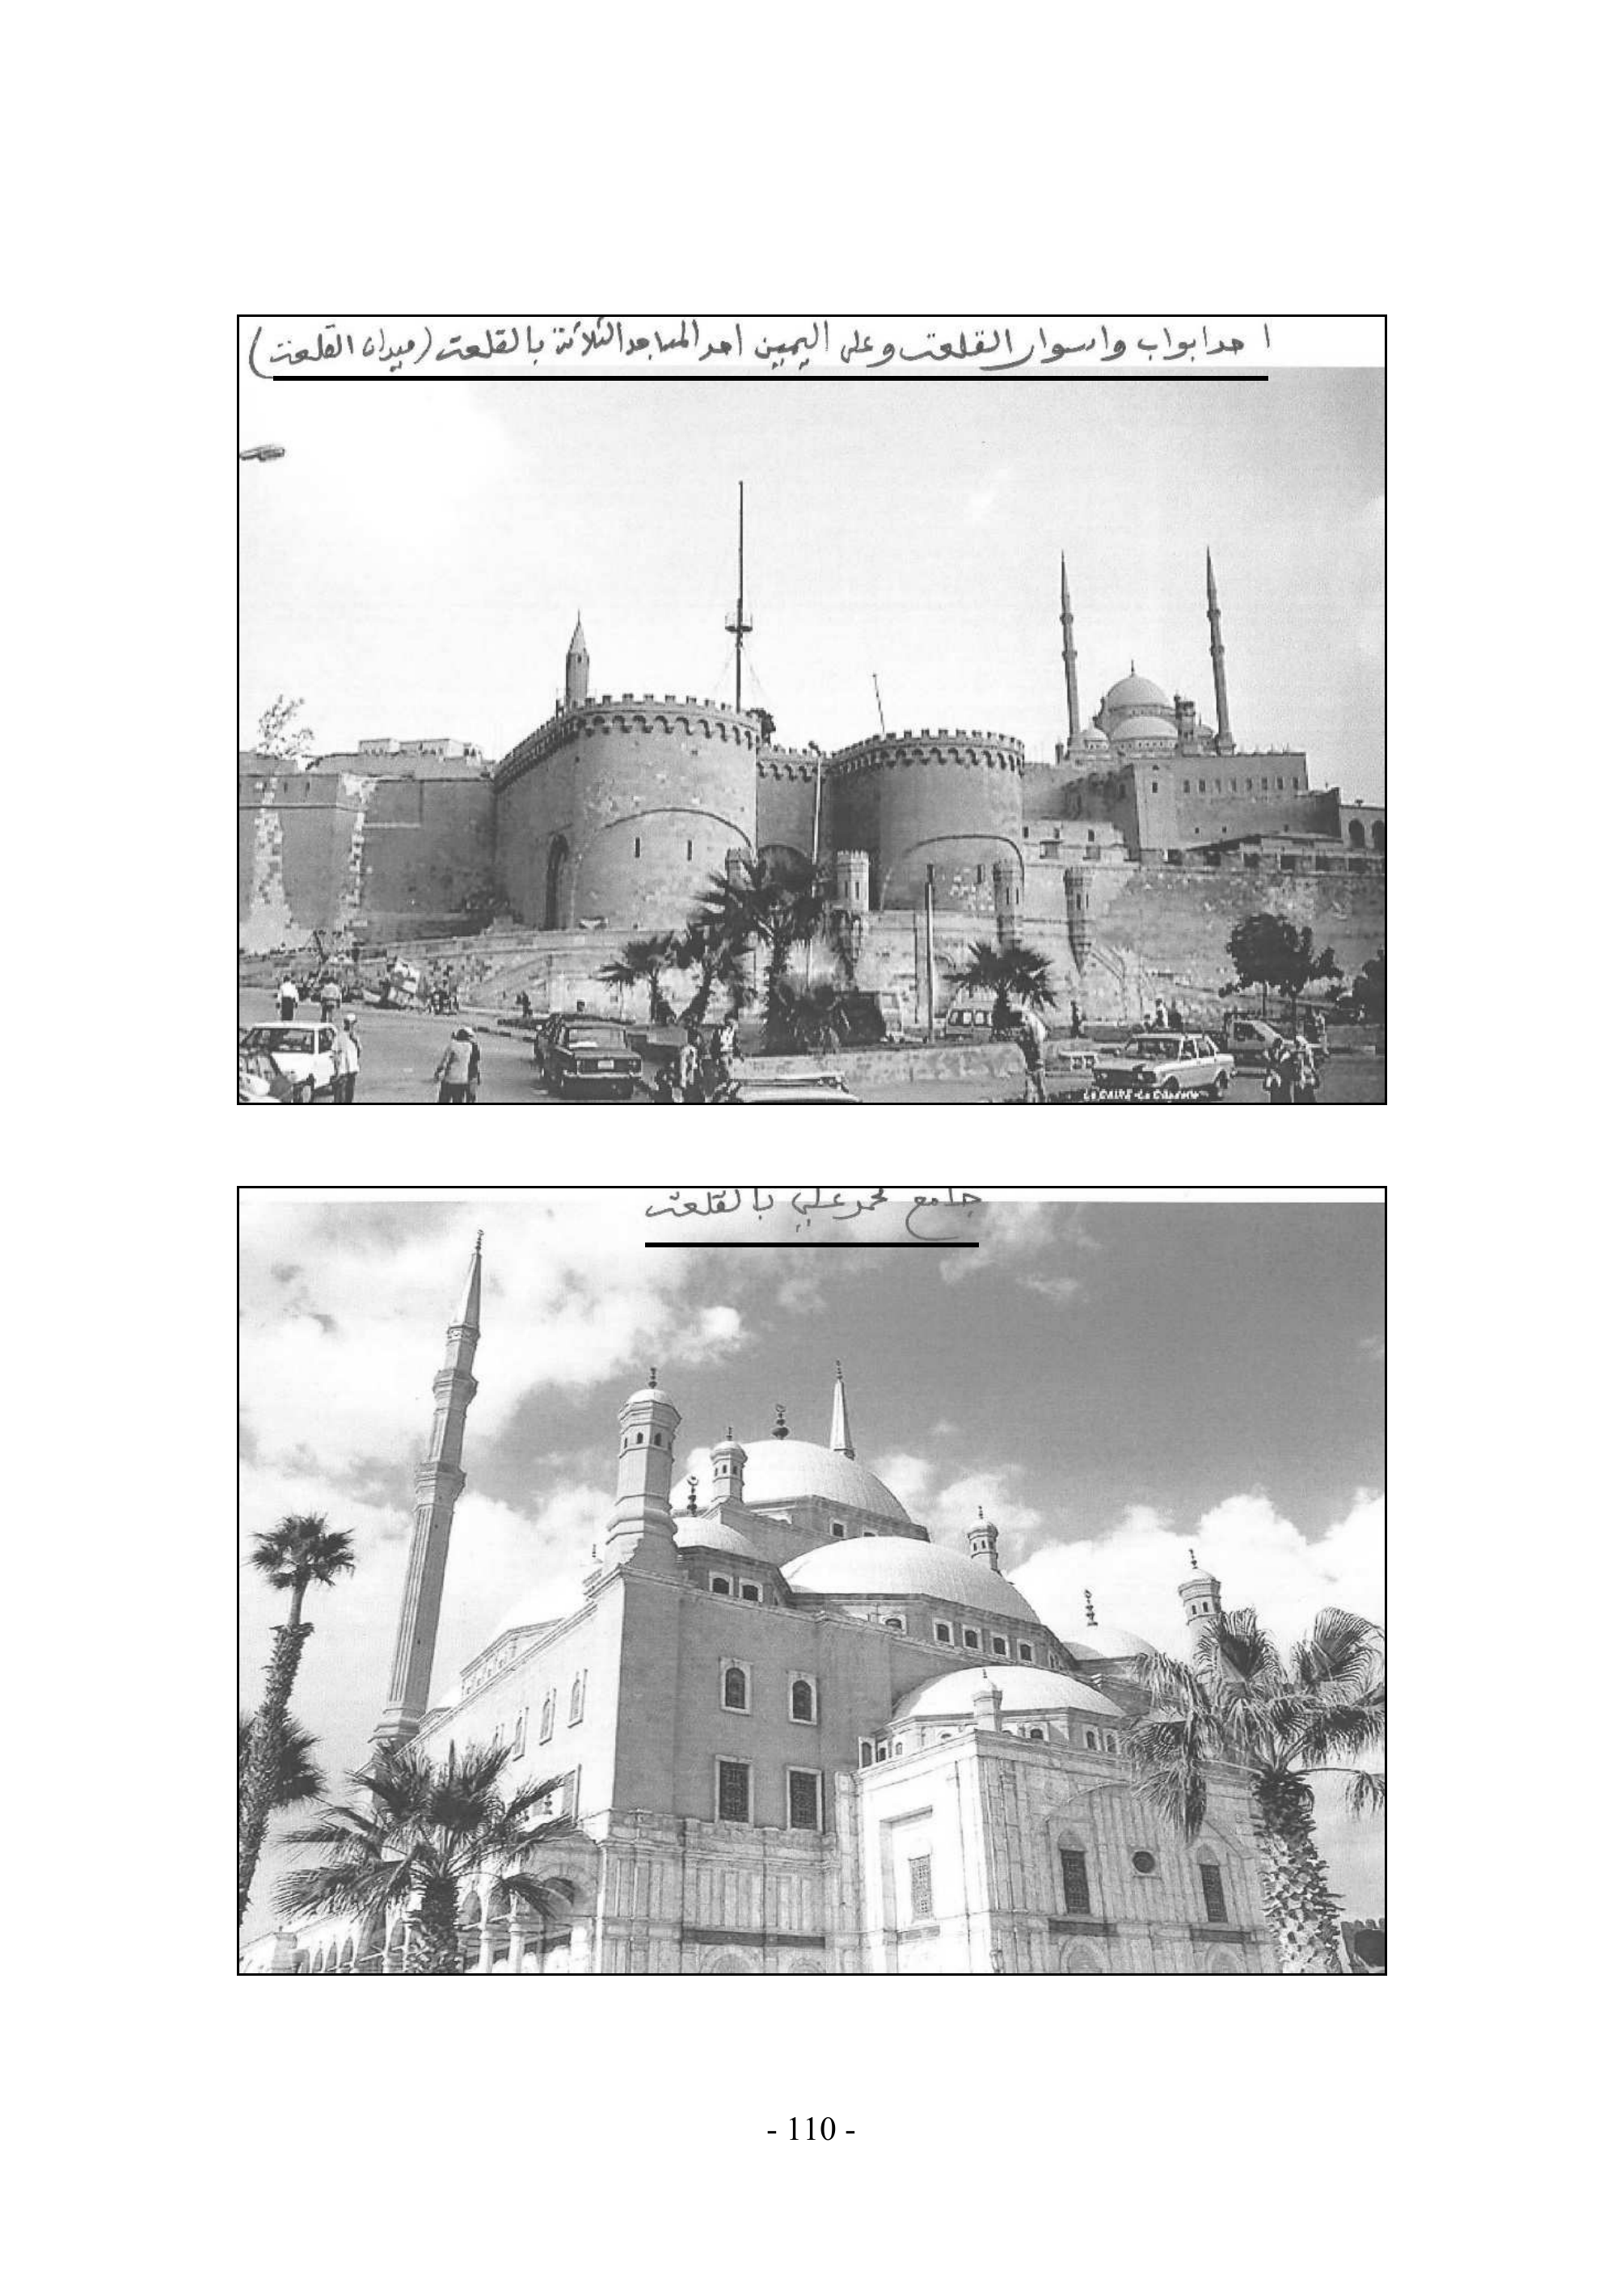 احد ابواب واسوار القلعة وعلى اليمين احد المساجد الثلاثة بالقلعة (ميدان القلعة)
LE CAIRE - La Citadelle
جامع محمد علي بالقلعة
- 110 -